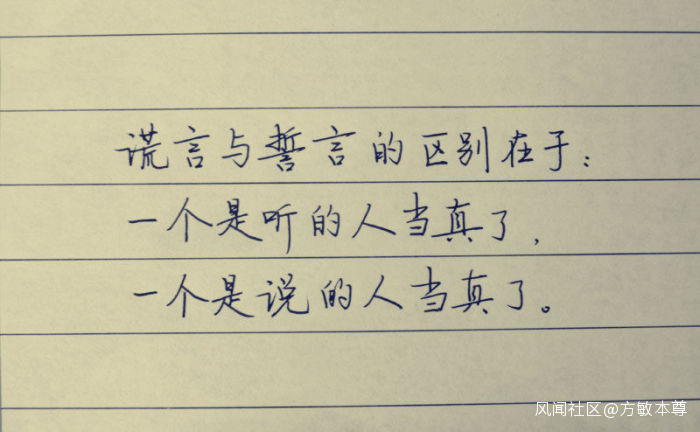 谎言与誓言的区别在于：
一个是听的人当真了，
一个是说的人当真了。
风闻社区@方敏本尊